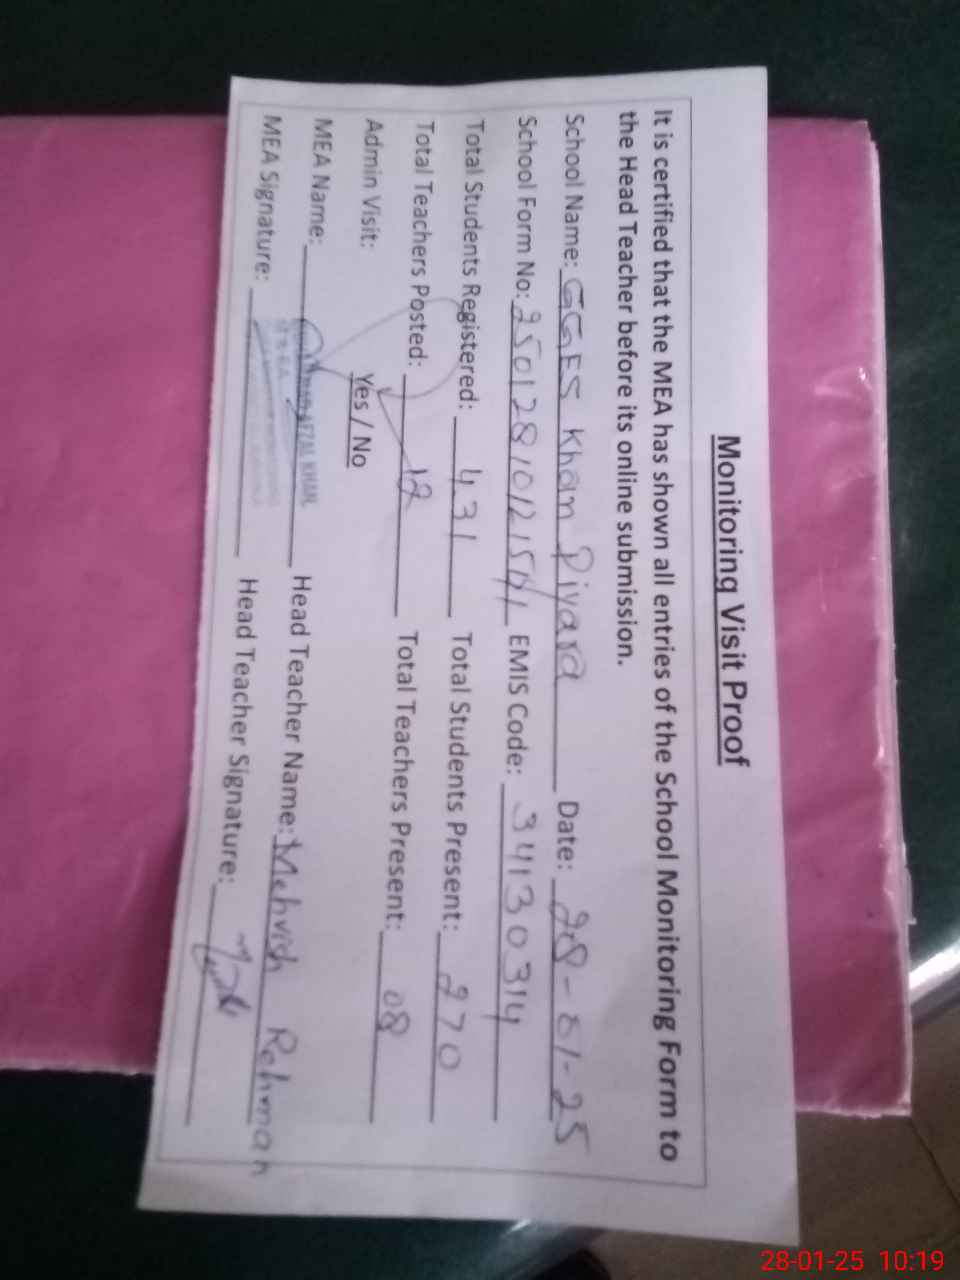 Monitoring Visit Proof
It is certified that the MEA has shown all entries of the School Monitoring Form to
the Head Teacher before its online submission.
School Name: GGES Khan Piyara Date: 28-01-25
School Form No: EMIS Code: 34130314
Total Students Registered: 431 Total Students Present: 270
Total Teachers Posted: 12 Total Teachers Present: 08
Admin Visit: Yes / No
MEA Name: AFZAL KHAN Head Teacher Name: Mehvish Rehman
MEA Signature: Head Teacher Signature:
28-01-25 10:19